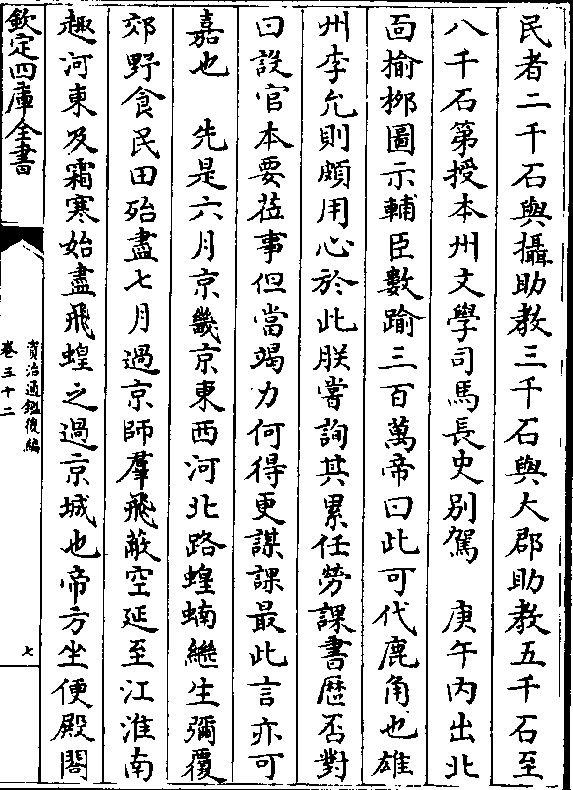 民者二千石與攝助教三千石與大郡助教五千石至
八千石第授本州文學司馬長史別駕　庚午內出北
面榆栁圖示輔臣數踰三百萬帝曰此可代鹿角也雄
州李允則頗用心於此朕嘗詢其累任勞課書歴否對
曰設官本要莅事但當竭力何得更謀課最此言亦可
嘉也　先是六月京畿京東西河北路蝗蝻繼生彌覆
郊野食民田殆盡七月過京師羣飛蔽空延至江淮南
趣河東及霜寒始盡飛蝗之過京城也帝方坐便殿閣
欽定四庫全書
資治通鑑後編
卷三十二
七